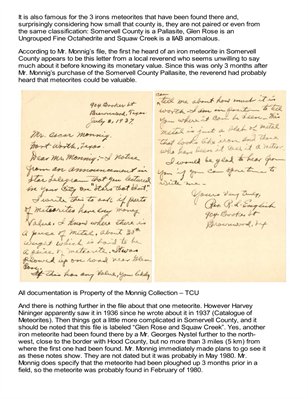 It is also famous for the 3 irons meteorites that have been found there and,
surprisingly considering how small that county is, they are not paired or even from
the same classification: Somervell County is a Pallasite, Glen Rose is an
Ungrouped Fine Octahedrite and Squaw Creek is a IIAB anomalous.
According to Mr. Monnig's file, the first he heard of an iron meteorite in Somervell
County appears to be this letter from a local reverend who seems unwilling to say
much about it before knowing its monetary value. Since this was only 3 months after
Mr. Monnig's purchase of the Somervell County Pallasite, the reverend had probably
heard that meteorites could be valuable.
904 Booker St
Brownwood, Texas
July 8, 1937
Mr. Oscar Monnig,
Fort Worth, Texas
Dear Mr. Monnig: I notice
from an announcement in
Star Telegram that you lectured
in your City on "Stars that Shoot".
I write this to ask if parts
of meteorites have any money
Value. I know where there is
a piece of metal, about
weight which is said to be
a piece of meteorite. It was
plowed up on road near Glen
Rose.
If this has any Value, you kindly
tell me about how much it is
worth, I am in position to tell
you where it can be seen. This
metal is just a blob of metal
that looks like iron and those
who have seen it call it a meteor.
I would be glad to hear from
you if you can
write me.
Yours Very Truly,
Rev. R. L. English
904 Booker St
Brownwood, Tex
All documentation is Property of the Monnig Collection – TCU
And there is nothing further in the file about that one meteorite. However Harvey
Nininger apparently saw it in 1936 since he wrote about it in 1937 (Catalogue of
Meteorites). Then things got a little more complicated in Somervell County, and it
should be noted that this file is labeled "Glen Rose and Squaw Creek". Yes, another
iron meteorite had been found there by a Mr. Georges Nystel further to the north-
west, close to the border with Hood County, but no more than 3 miles (5 km) from
where the first one had been found. Mr. Monnig immediately made plans to go see it
as these notes show. They are not dated but it was probably in May 1980. Mr.
Monnig does specify that the meteorite had been ploughed up 3 months prior in a
field, so the meteorite was probably found in February of 1980.